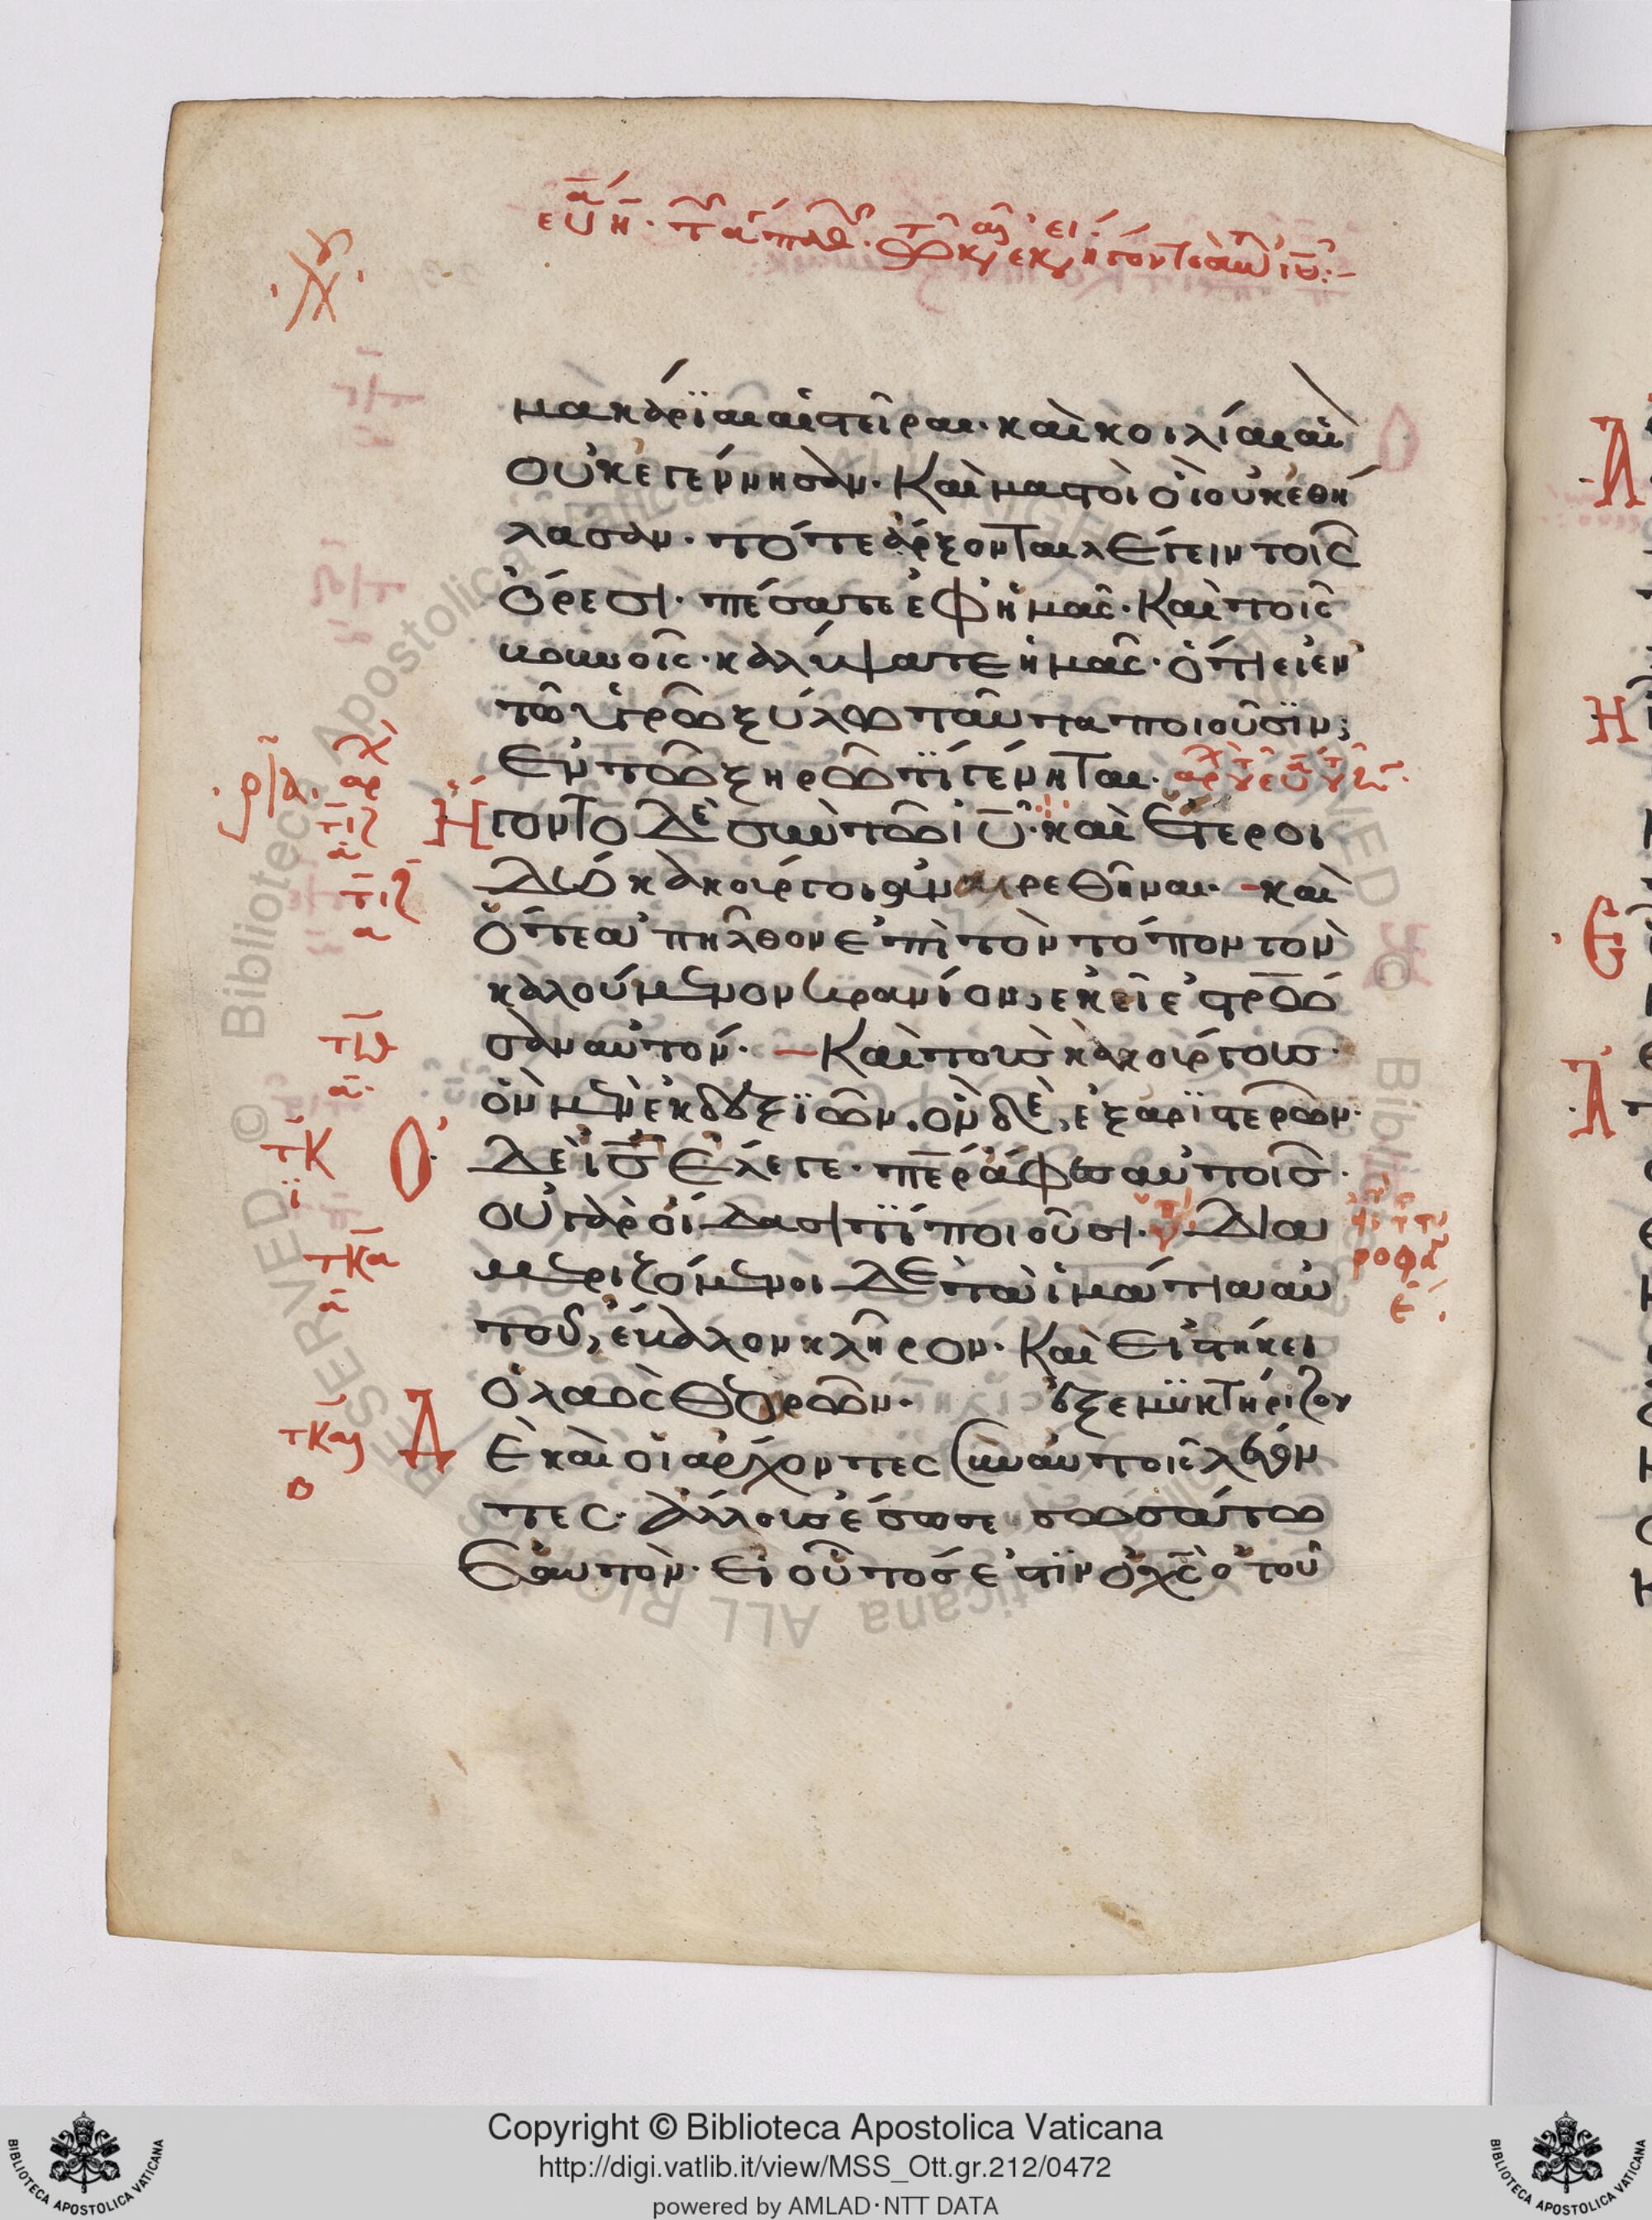 μακάρϊαι αἱ στεῖραι· καὶ κοιλίαι αἳ
οὐκ ἐγέννησαν· Καὶ μαστοὶ οἳ οὐκ ἐθή
λασαν· τότε ἄρξονται λέγειν τοῖς
ὄρεσι· πέσατε ἐφ' ἡμᾶς· Καὶ τοῖς
βουνοῖς· καλύψατε ἡμᾶς· ὅτι εἰ ἐν
τῶ ὑγρῶ ξύλω ταῦτα ποιοῦσϊν;
Ἐν τῶ ξηρῶ τί γένηται·
Ἤγοντο δὲ σὺν τῶ ἰῦ· καὶ ἕτεροι
δύο κακοῦργοι συναιρεθῆναι· – καὶ
ὅτε ἀπῆλθον ἐπὶ τὸν τόπον τὸν
καλούμενον κρανίον, ἐκεῖ ἐστρω
σαν αὐτόν· – Καὶ τοὺς κακούργους·
ὃν μὲν ἐκ δεξϊῶν. ὃν δὲ, ἐξ ἀρϊστερῶν·
Ὁ δὲ ἰς ἔλεγε· περ ἄφες αὐτοῖς·
οὐ γὰρ οἴδασι τί ποιοῦσι· Δια
μεριζόμενοι δὲ τὰ ἱμάτια αὐ
τοῦ, ἔβαλον κλῆρον· Καὶ εἱστήκει
ὁ λαὸς θεωρῶν· ἐξεμϋκτήριζον
Δ ὲ καὶ οἱ ἄρχοντες σὺν αὐτοῖς λέγον
τες· ἄλλους ἔσωσε σωσάτω
ἑαυτὸν· εἰ οὗτός ἐστϊν ὁ χς ὁ τοῦ
Copyright © Biblioteca Apostolica Vaticana
http://digi.vatlib.it/view/MSS_Ott.gr.212/0472
powered by AMLAD·NTT DATA
BIBLIOTECA APOSTOLICA VATICANA
BIBLIOTECA APOSTOLICA VATICANA